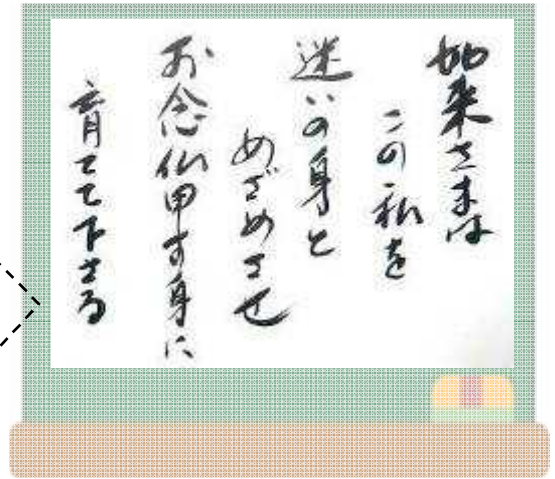 如来さまは
この私を
迷いの身と
めざめさせ
お念仏申す身に
育てて下さる